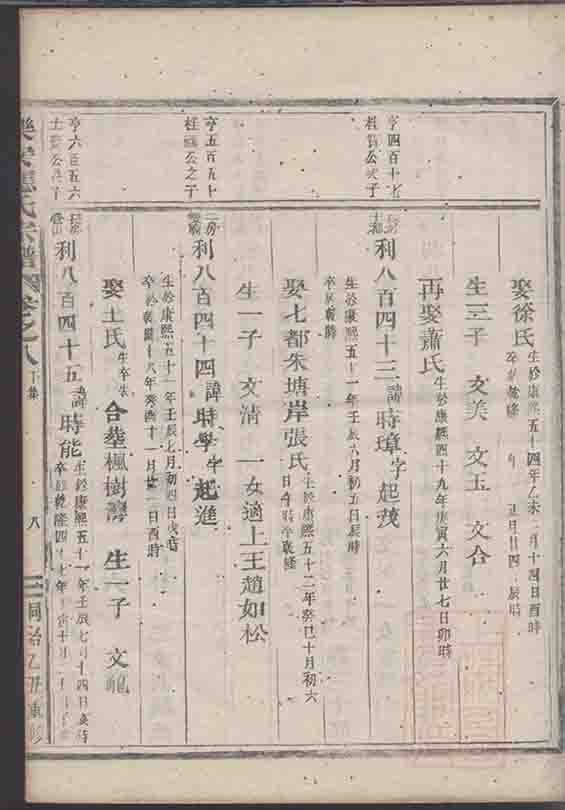 娶徐氏 生於康熙五十四年乙未二月十四日酉時 卒於乾隆 年 正月廿四 辰時
生三子 文美 文玉 文合
再娶蕭氏 生於康熙四十九年庚寅六月廿七日卯時
亨四百十七 桂 公次子
利八百四十三 諱時璋字起茂
生於康熙五十一年壬辰六月初五日辰時 卒於乾隆
娶七都朱塘岸張氏 生於康熙五十二年癸巳十月初六日午時卒乾隆
生一子 文清 一女適上王趙如松
亨五百五十 桂 公之子
二房 利八百四十四 諱時學字起進
生於康熙五十一年壬辰七月初四日戌時 卒於乾隆十八年癸酉十一月廿二日酉時
娶王氏 生卒失 合葬楓樹灣 生一子 文龍
亨六百五六 士 公 子
利八百四十五 諱時能 生於康熙五十一年壬辰七月十四日 時 卒於乾隆四十七年 寅十月
氏宗譜 卷之八 下集 八 同治乙丑重修